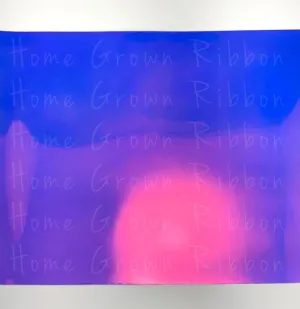 Home Grown Ribbon
Home Grown Ribbon
Home Grown Ribbon
Home Grown Ribbon
Home Grown Ribbon
Home Grown Ribbon